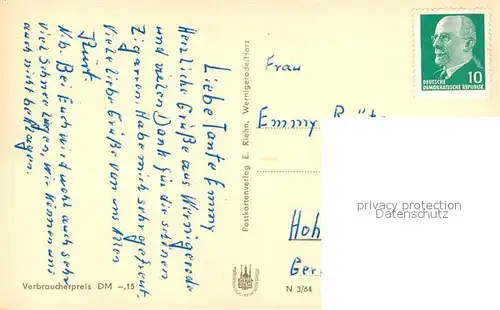 Liebe Tante Emmy
Herzliche Grüße aus Wernigerode
und vielen Dank für die schönen
Zigarren. Habe mich sehr gefreut.
Viele liebe Grüße von uns Allen
Kurt.
Nb. Bei Euch wird wohl auch sehr
viel Schnee liegen, wir können uns
auch nicht beklagen.
Verbraucherpreis DM –,15
Postkartenverlag E. Riehn, Wernigerode/Harz
N 3/64
DEUTSCHE
DEMOKRATISCHE REPUBLIK
10
Frau
Emmy
privacy protection
Datenschutz
Hoh